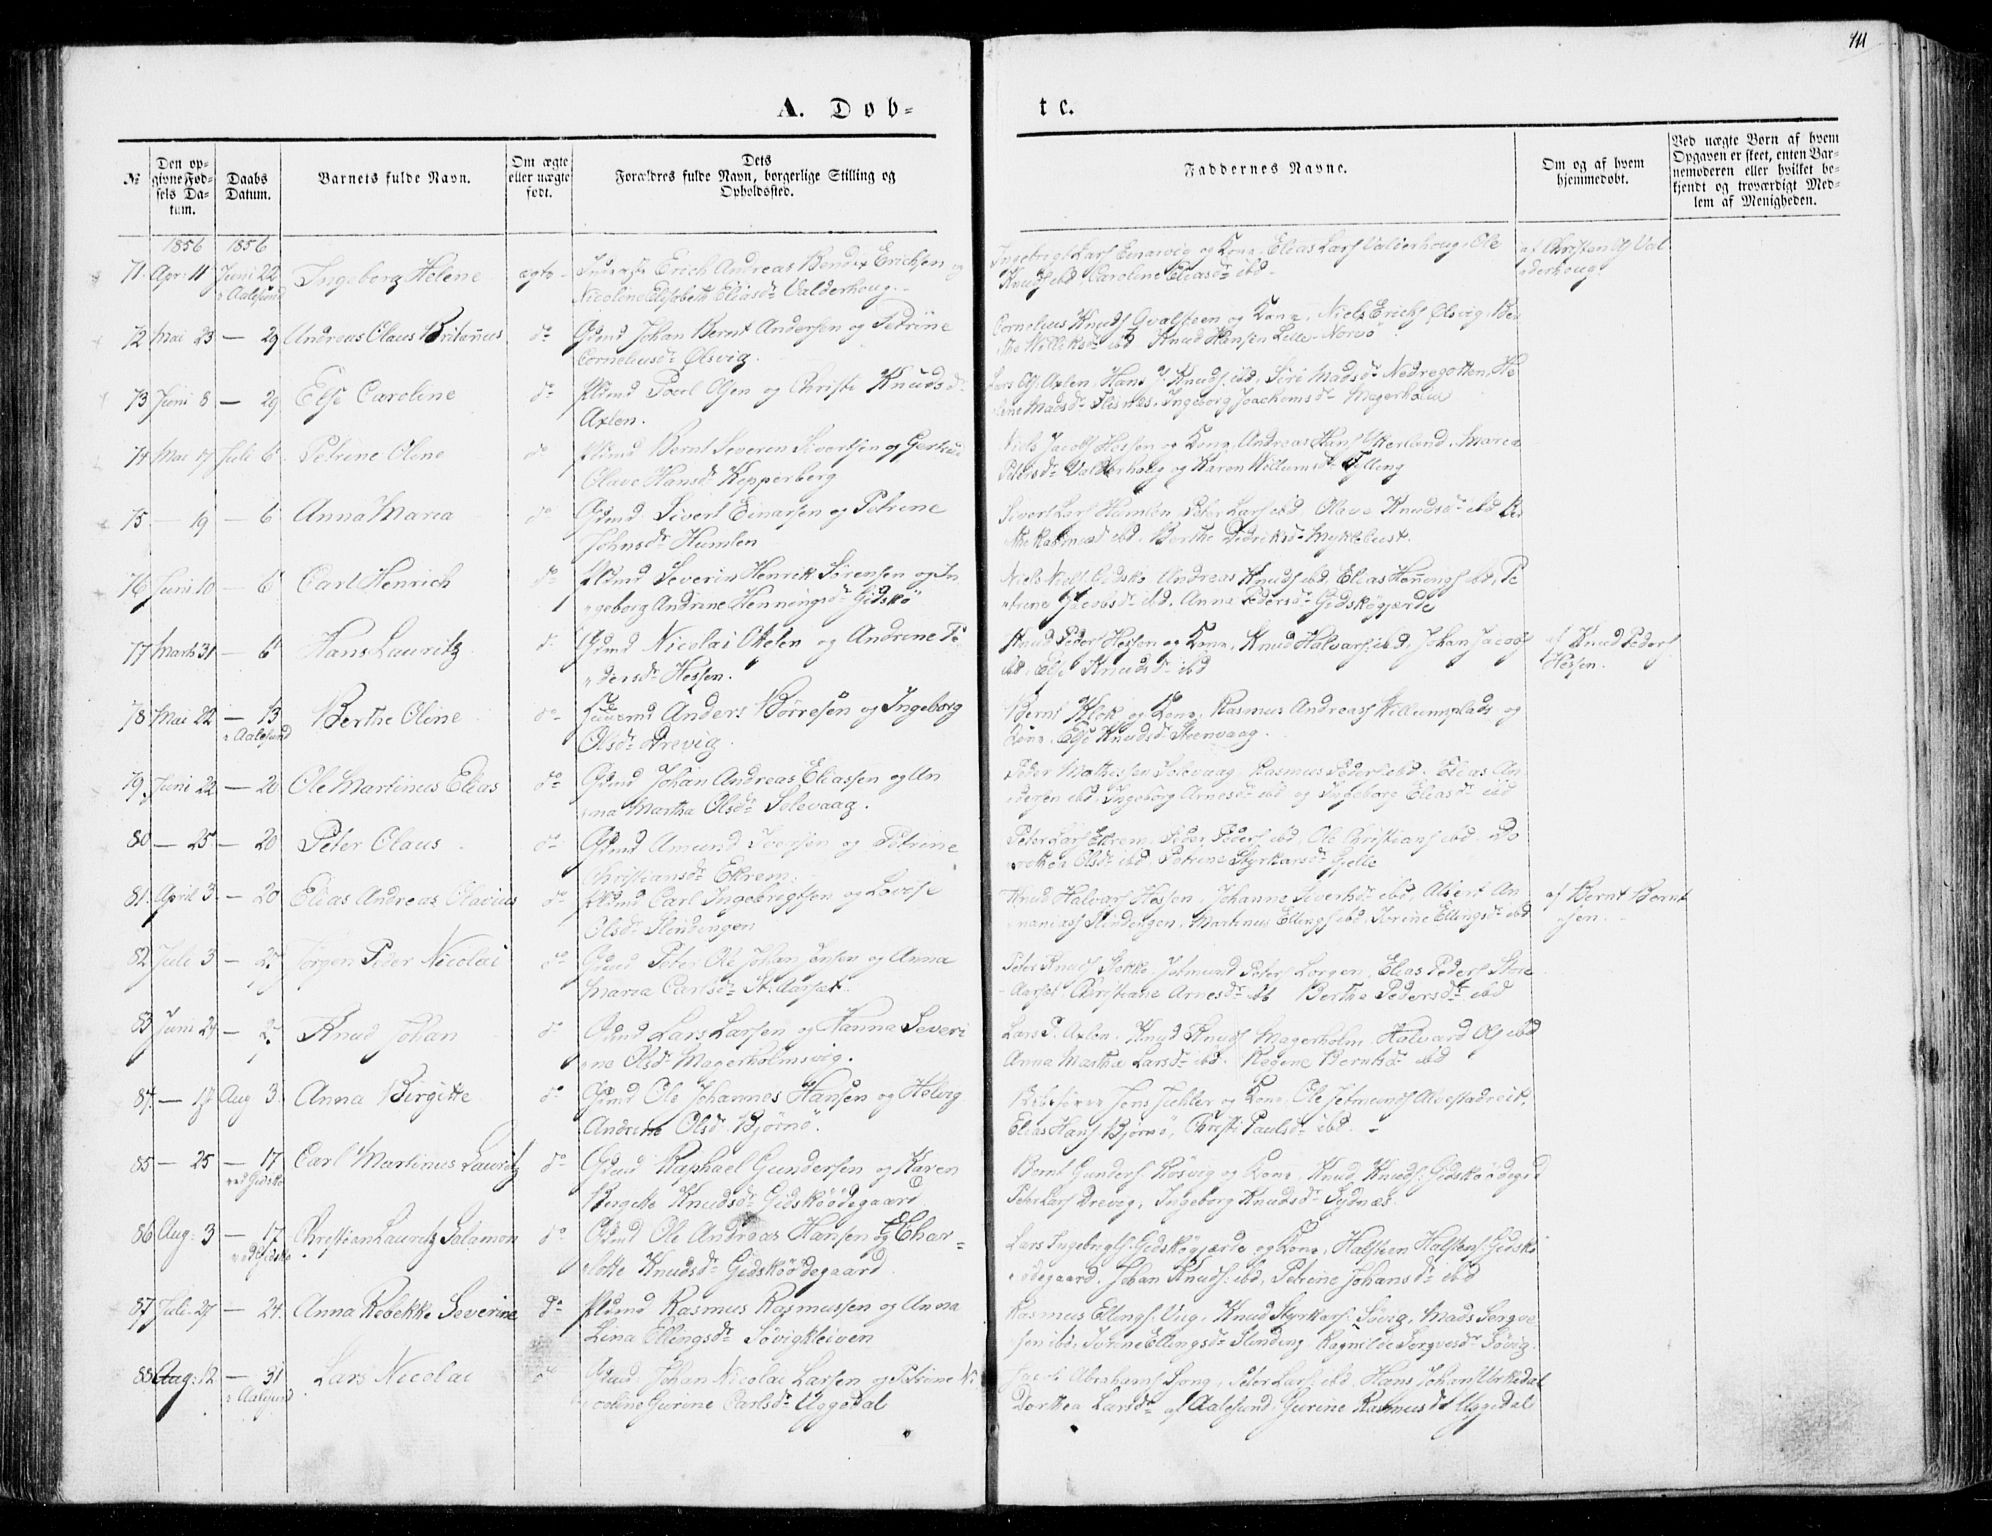 111
A. Døb-
te.
№
Den op-
givne Fød-
sels Da-
tum.
Daabs
Datum.
Barnets fulde Navn.
Om ægte
eller uægte
født.
Dets
Forældres fulde Navn, borgerlige Stilling og
Opholdssted.
Faddernes Navne.
Om og af hvem
hjemmedøbt.
Ved uægte Børn af hvem
Opgaven er skeet, enten Bar-
nemoderen eller hvilket be-
kjendt og troværdigt Med-
lem af Menigheden.
1856 1856
71 Apr. 11 Juni 22 Ingeborg Helene ægte Erich Andreas Bendix Erichsen og
i Aalesund Nicoline Elisabeth Eliasdr Valderhoug.
Ingebrigt Lars Einarvig og Kone, Elias Lars Valderhoug, Ole
Knuds ibd Caroline Eliasdr ibd
af Christen Ols Val
derhoug
72 Mai 23 — 29 Andreas Claus Britanus do Gdmd Johan Bernt Andersen og Petrine
Corneliusdr Olsvig.
Cornelius Knuds Qvalsteen og Kone, Niels Erichs Olsvig, Ber
the Williksdr ibd Knud Hansen Lille-Norvö
73 Juni 8 — 29 Else Caroline do Plsmd Poul Olsen og Christi Knudsdr
Axlen.
Lars Ols Axlen, Hans J. Knuds ibd, Siri Madsdr Nedregotten, He
line Madsdr Flisnæs, Ingeborg Joachimsdr Magerholm
74 Mai 17 Juli 6 Petrine Oline do Plsmd Bernt Severin Sivertsen og Gertrud
Olave Hansdr Kepperberg
Niels Jacobs Hessen og Kone, Andreas Hans Ytterland, Marea
Petersdr Valderhoug og Karen Willumsdr Tælling
75 — 19 — 6 Anna Marea do Gdmd Sivert Einarsen og Petrine
Johnsdr Humlen
Sivert Lars Humlen, Peter Lars ibd, Olave Knudsdr ibd Be
the Rasmusdr ibd, Berthe Didriksdr Myklebust.
76 Juni 10 — 6 Carl Henrich do Plsmd Severin Henrik Sørensen og In
geborg Andrine Henningsdr Gidskö
Niels Niels Gidskö Andreas Knuds ibd, Elias Hennings ibd, Pe
trine Jacobsdr ibd, Anne Pedersdr Gidskögjærde
77 Marts 31 — 6 Hans Lauritz do Gdmd Nicolai Olsen og Andrine Pe
dersdr Hessen.
Knud Peders Hessen og Kone, Knud Halvars ibd, Johan Jacobs
ibd, Else Knudsdr ibd
af Knud Peders
Hessen.
78 Mai 22 — 13 Berthe Oline do Anders Børresen og Ingeborg
i Aalesund Olsdr Drevig.
Bernt Klok og Kone, Rasmus Andreass Willumsplads og
Kone, Else Knudsdr Steenvaag.
79 Juni 22 — 20 Ole Martinus Elias do Gdmd Johan Andreas Eliassen og An
na Martha Olsdr Solevaag.
Peder Mathessen Solevaag Rasmus Peders ibd. Elias An
dersen ibd, Ingeborg Arnesdr ibd og Ingeborg Eliasdr ibd
80 — 25 — 20 Peter Olaus do Gdmd Amund Iversen og Petrine
Christiansdr Ekrem.
Peter Lars Ekrem, Peder Peders ibd, Ole Christians ibd Do
rothea Olsdr ibd, Petrine Styrkarsdr Gjelle
81 April 3 — 20 Elias Andreas Olavius do Plsmd Carl Ingebrigtsen og Lovise
Olsdr Slindingen
Knud Halvars Hessen, Johanne Sivertsdr ibd, Alsert An
naniass Slindingen, Martinus Ellings ibd Serine Ellingsdr ibd
af Bernt Bernt
sen.
82 Juli 3 — 27 Jørgen Peder Nicolai do Gdmd Peter Ole Johan Jensen og Anna
Marea Carlsdr St. Aarset.
Peter Knuds Slokke Jetmund Peters Lorgen, Elias Peders Store
Aarset Christiane Arnesdr ibd Berthe Pedersdr ibd
83 Juni 24 — 27 Knud Johan do Gdmd Lars Larsen og Hanna Severi
ne Olsdr Magerholmsvig.
Lars P. Axlen. Knud Knuds Magerholm Halvard Ols ibd
Anna Martha Larsdr ibd. Regine Berntsdr ibd
84 — 17 Aug 3 Anna Birgitte do Gdmd Ole Johannes Hansen og Helvig
Andrea Olsdr Bjørnö.
Kirkesanger Jens Jehler og Kone, Ole Jetmunds Alvestadreit,
Elias Hans Bjørnö, Christi Paulsdr ibd.
85 — 25 — 17 Carl Martinus Lauritz do Gdmd Raphael Gundersen og Karen
ved Gidske Bergitte Knudsdr Gidskøödegaard
Bernt Gunders Røsvig og Kone Knud Knuds Gidskøödegrd
Peter Lars Drevig, Ingeborg Knudsdr Sydnæs.
86 Aug: 3 — 17 Christian Lauritz Salamon do Gdmd Ole Andreas Hansen og Char-
ved Gidske lotte Knudsdr Gidskøödegaard
Lars Ingebrigts Gidskøgjærde og Kone, Halsteen Halstens Gidskö
ödegaard, Johan Knuds ibd, Petrine Johansdr ibd
87 Juli 27 — 24 Anna Rebekke Severine do Plsmd Rasmus Rasmussen og Anna
Lina Ellingsdr Søvigkleiven
Rasmus Ellings Vug, Knud Styrkars Søvig, Mads Sergve
sen ibd, Serine Ellingsdr Slinding Ragnilde Sergvesdr Søvig
88 Aug: 12 — 31 Lars Nicolai do Gdmd Johan Nicolai Larsen og Petrine Ni
i Aalesund coline Gurine Carlsdr Uggedal
Jacob Abrahams Song, Peter Lars ibd Hans Johan Urkedal
Dorthea Larsdr af Aalesund, Gurine Rasmusdr Uggedal